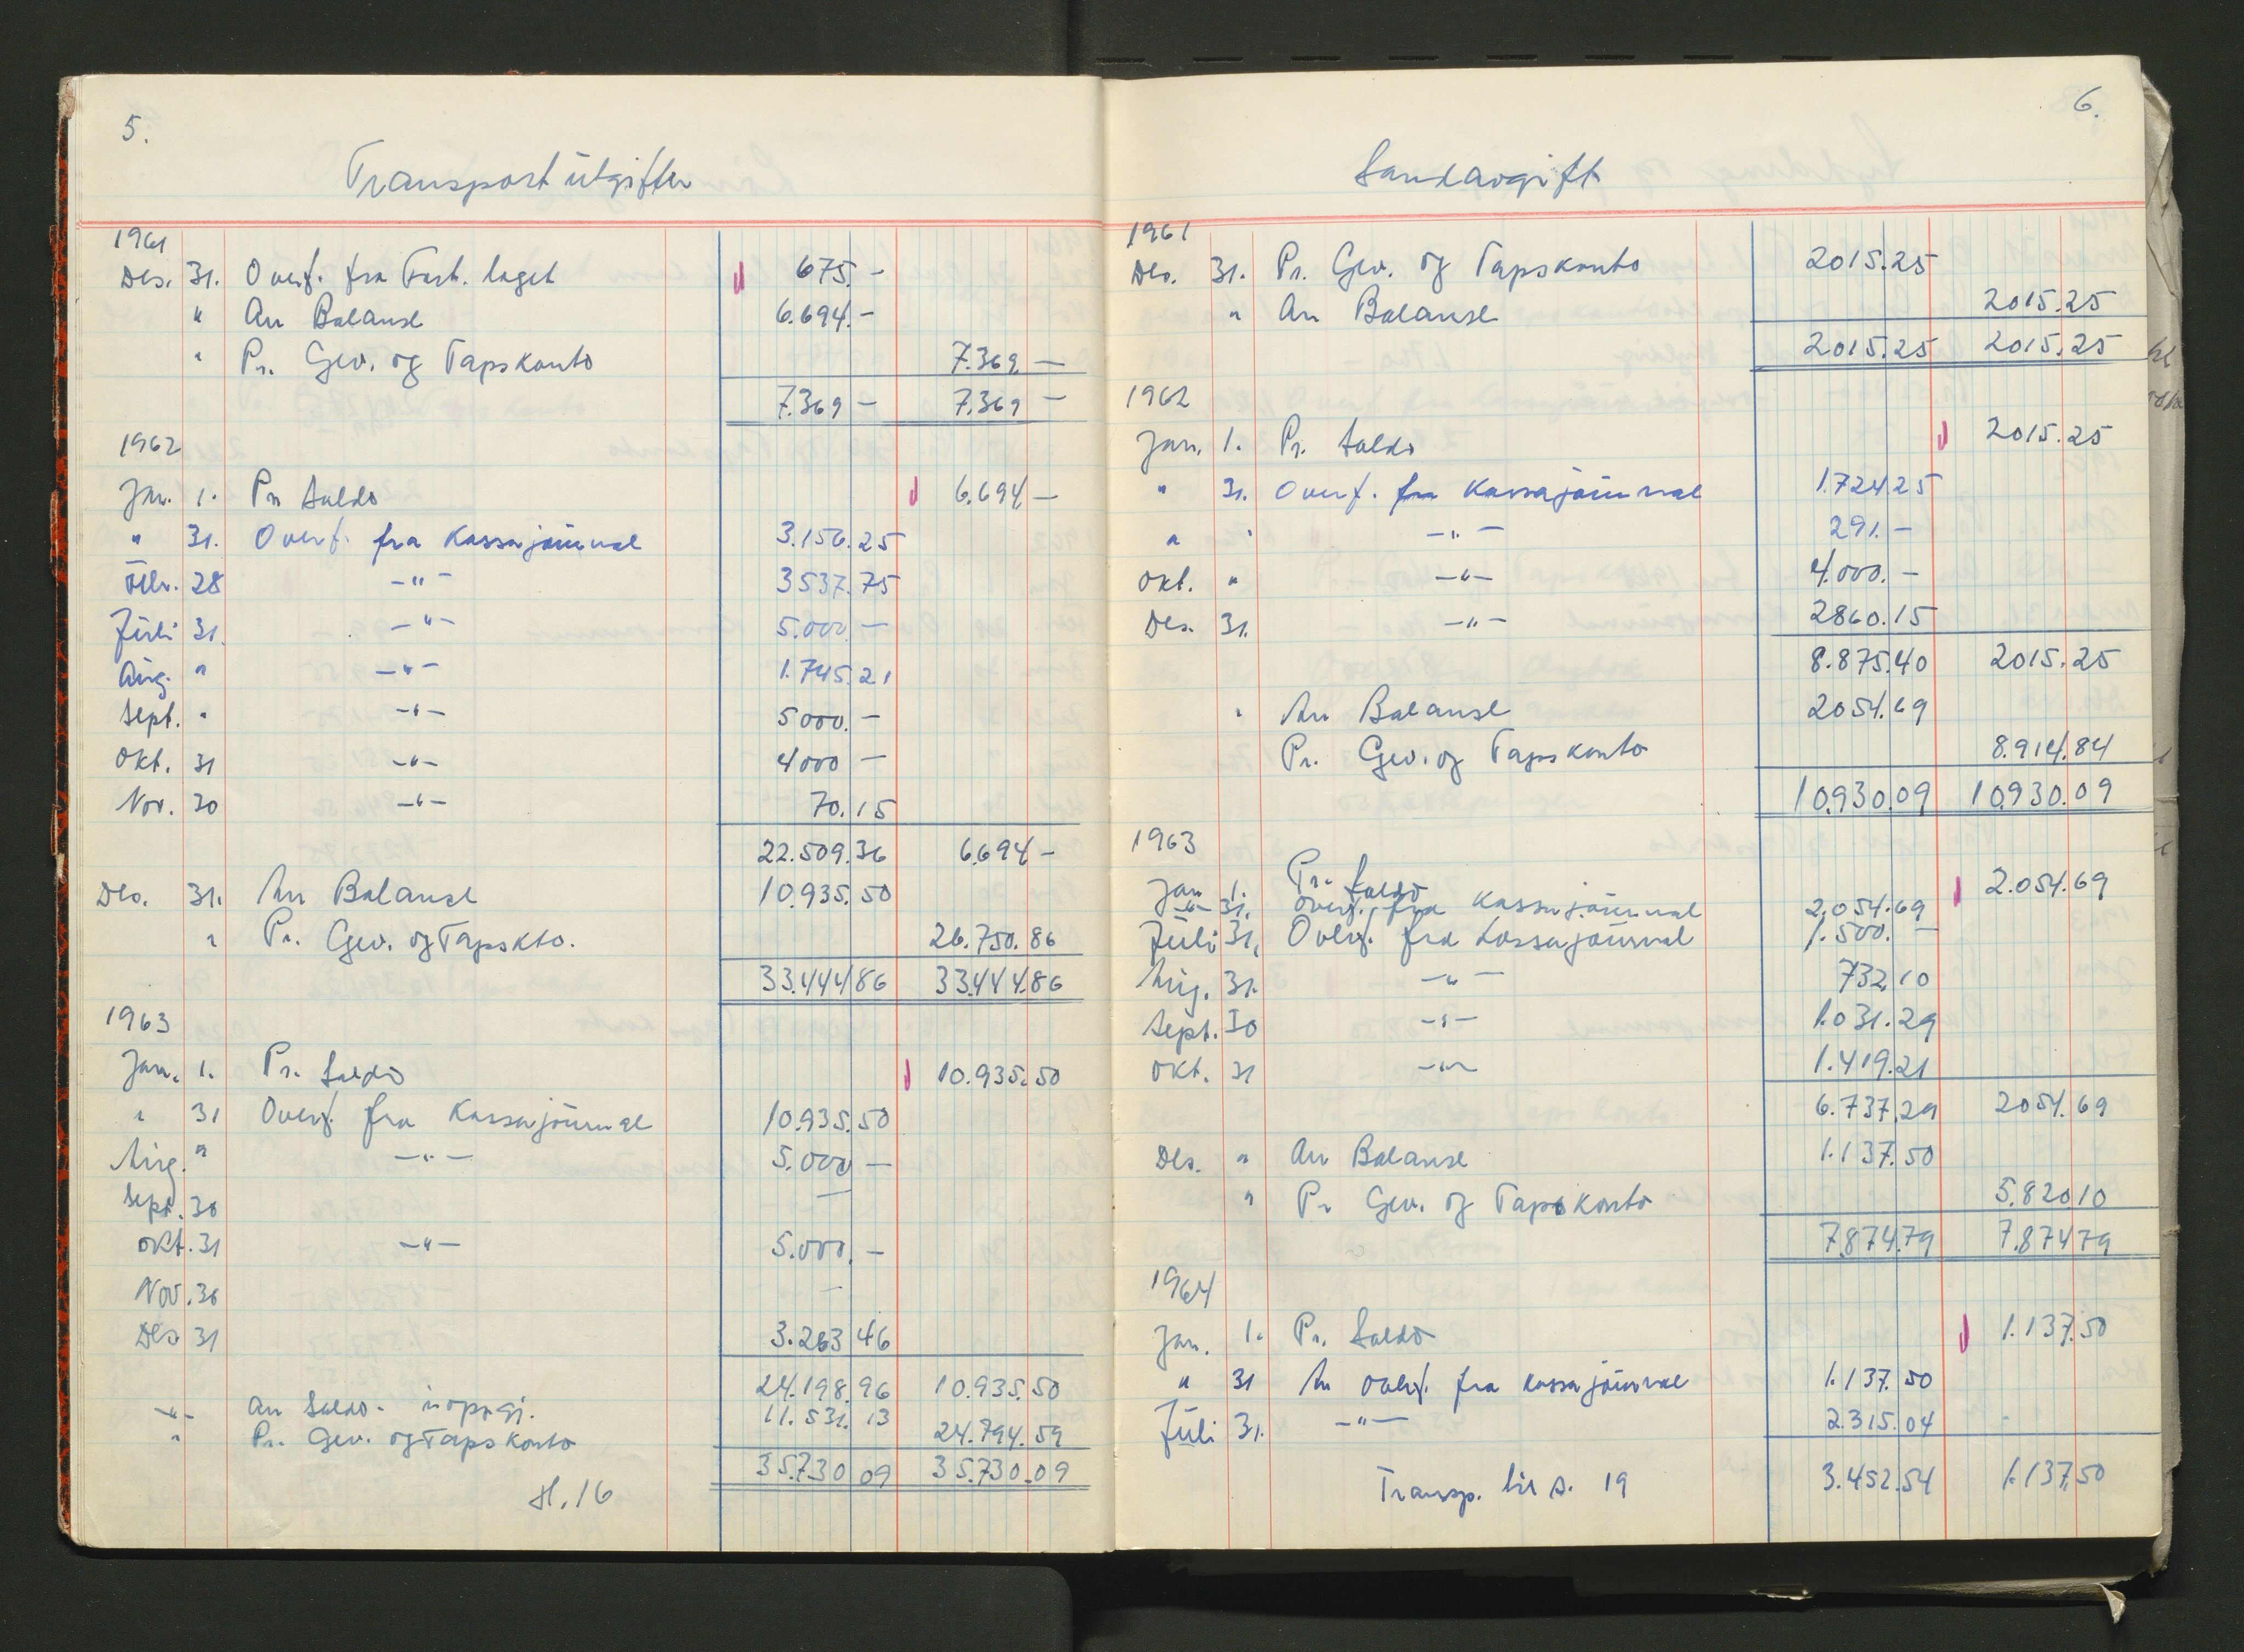 5.
Transportutgifter
1961
Des. 31. Overf. fra Fort. laget 675.-
" An Balanse 6.694.-
" Pr. Gev. og Tapskonto 7.369 —
7.369 — 7.369 —
1962
Jan. 1. Pr Saldo 6.694 —
" 31. Overf. fra Kassajournal 3.156.25
Febr. 28 -"- 3537.75
Juli 31. -"- 5.000 —
Aug. " -"- 1.745.21
Sept. " -"- 5000.—
Okt. 31 -"- 4000 —
Nov. 30 -"- 70.15
22.509.36 6.694 —
Des. 31. An Balanse 10.935.50
" Pr. Gev. og Tapskto. 26.750.86
33.444 86 33.444.86
1963
Jan. 1. Pr. Saldo 10.935.50
" 31 Overf. fra Kassajournal 10.935.50
Aug. " -"- 5.000 —
Sept. 30 —
Okt. 31 -"- 5.000.—
Nov. 30 —
Des 31 3.263 46
24.198.96 10.935.50
-"- An Saldo - uoppgj. 11.531.13
" Pr. Gev. og Tapskonto 24.794.59
35.730 09 35.730.09
H. 16
6.
Sandavgift
1961
Des. 31. Pr. Gev. og Tapskonto 2015.25
" An Balanse 2015.25
2015.25 2015.25
1962
Jan. 1. Pr. Saldo 2015.25
" 31. Overf. fra Kassajournal 1.724 25
" " -"- 291.—
Okt. " -"- 4.000.—
Des. 31. -"- 2860.15
8.875.40 2015.25
" An Balanse 2054.69
Pr. Gev. og Tapskonto 8.914.84
10.930.09 10.930.09
1963
Jan 1. Pr. Saldo 2.054.69
-"- 31. Overf. fra Kassajournal 2.054.69
Juli 31. Overf. fra Kassajournal 1.500.—
Aug. 31. -"- 732.10
Sept. 30 -"- 1.031.29
Okt. 31 -"- 1.419.21
6.737.29 2054.69
Des. " An Balanse 1.137.50
" Pr Gev. og Tapskonto 5.820 10
7.874.79 7.874 79
1964
Jan. 1. Pr. Saldo 1.137.50
" 31 An overf. fra Kassajournal 1.137.50
Juli 31. -"- 2.315.04
Transp. til s. 19 3.452.54 1.137.50